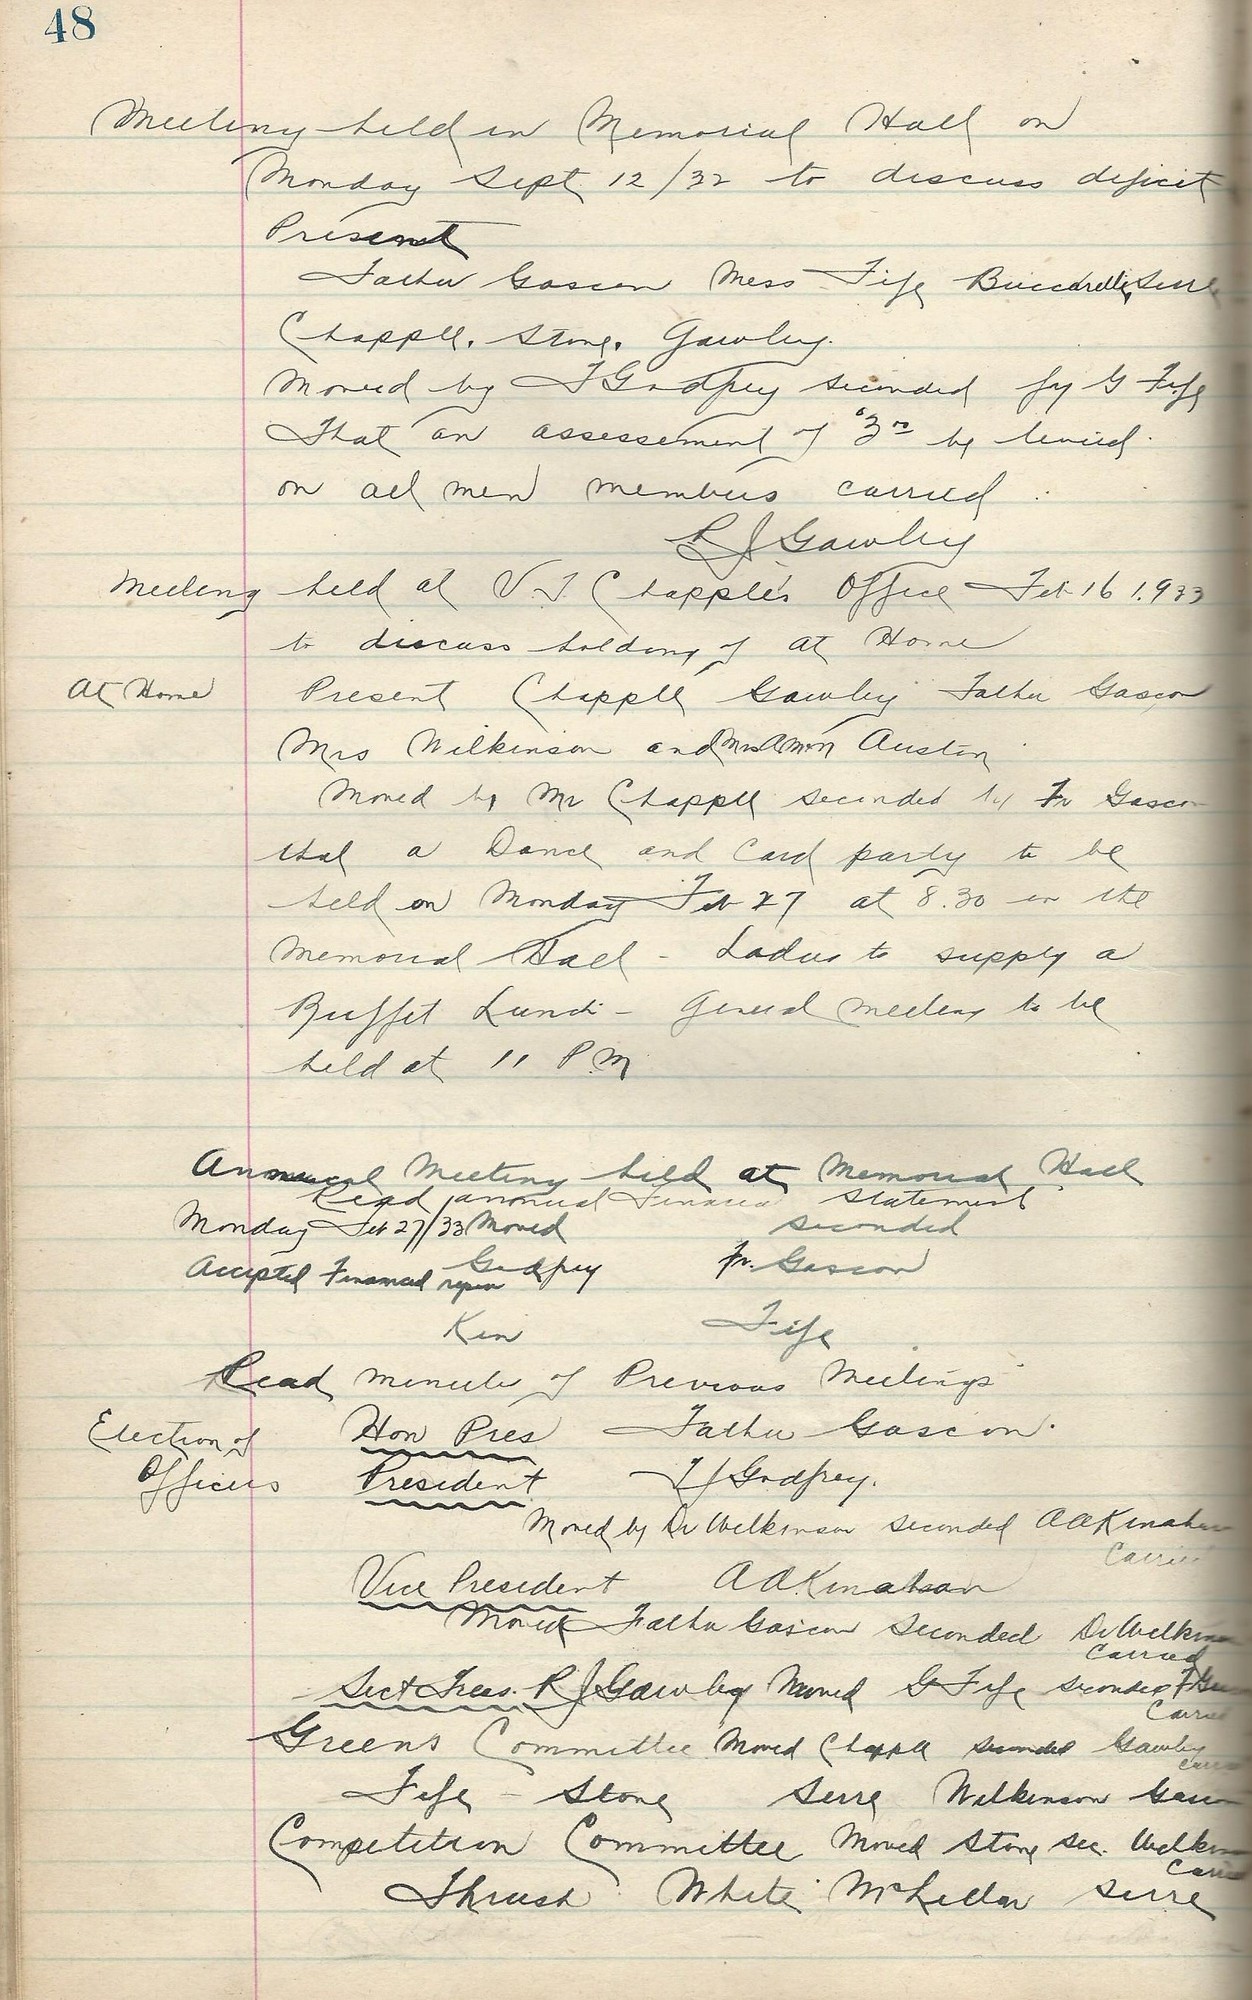 48
Meeting held in Memorial Hall on
Monday Sept 12/32 to discuss deficit
Present
Father Gascon Mess Fife Buccarelli, Serre
Chapple. Stone. Gawley.
Moved by T Godfrey seconded by G Fife
That an assessement of $3.00 be levied
on all men members carried
R J Gawley
Meeting held at V.T. Chapple's Office Feb 16 1933
to discuss holding of at Home
At Home Present Chapple Gawley Father Gascon
Mrs Wilkinson and Austin
Moved by Mr Chapple seconded by Fr Gascon
that a Dance and Card party to be
held on Monday Feb 27 at 8.30 in the
Memorial Hall - Ladies to supply a
Buffet Lunch - General meeting to be
held at 11 P.M
Annual Meeting held at Memorial Hall
Read annual Financial Statement
Monday Feb 27/33 Moved seconded
Accepted Financial report Godfrey Fr. Gascon
Kin Fife
Read minute of Previous Meetings
Election of Officers
Hon Pres Father Gascon.
President T J Godfrey.
Moved by Dr Wilkinson seconded A A Kinahan
Carried
Vice President A A Kinahan
Moved Father Gascon seconded Dr Wilkinson
Carried
Sect Treas. R J Gawley Moved G Fife seconded
Carried
Greens Committee Moved Chapple seconded Gawley
Carried
Fife - Stone Serre Wilkinson Gascon
Competition Committee Moved Stone sec. Wilkinson
Carried
Thrush White McLellan Serre